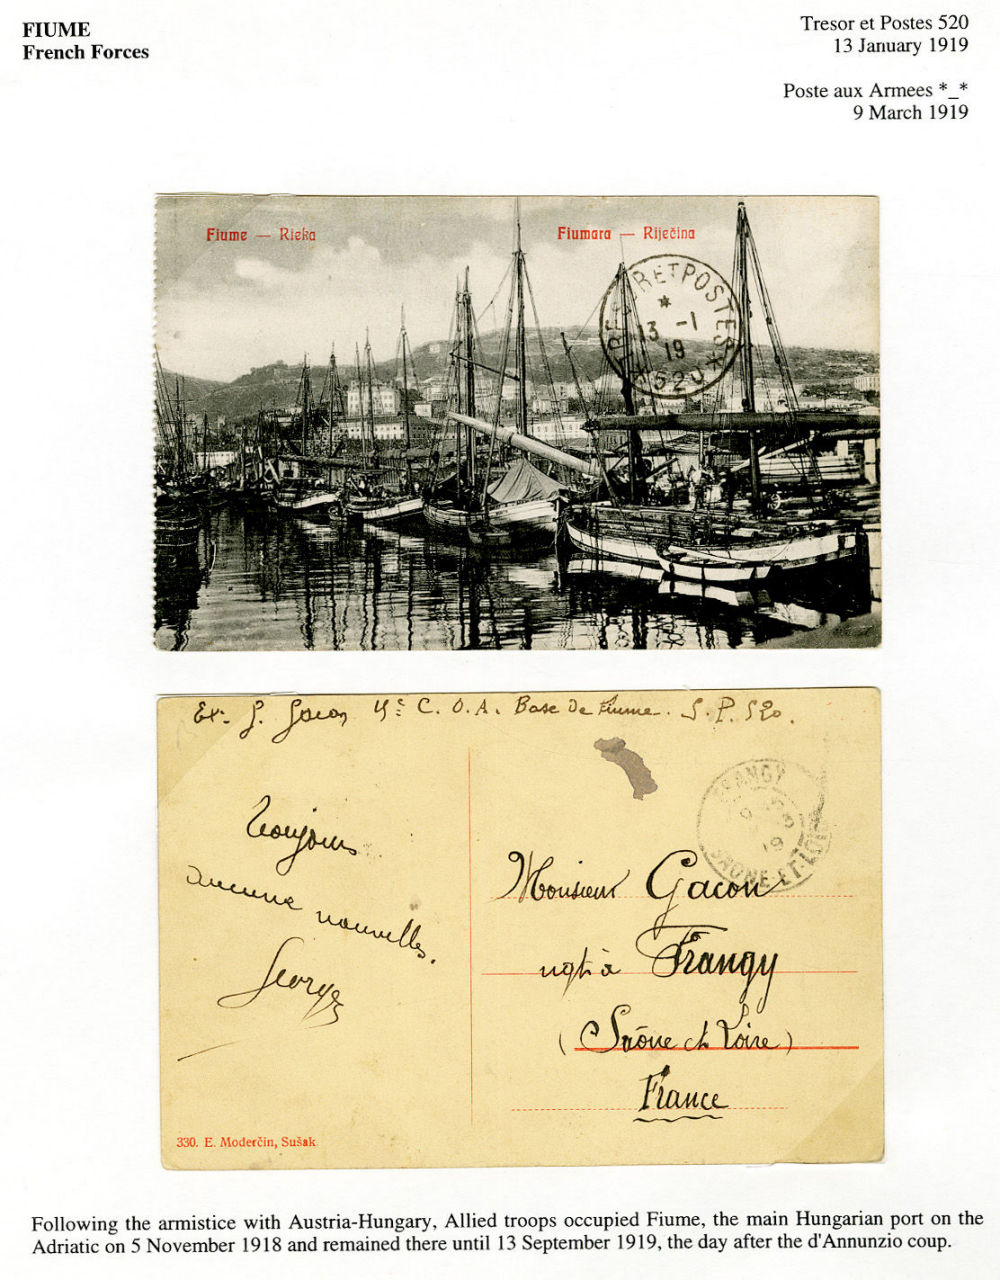 FIUME
French Forces
Tresor et Postes 520
13 January 1919
Poste aux Armees *_*
9 March 1919
Fiume — Rieka
Fiumara — Riječina
TRESOR ET POSTES
*
13 -1
19
* 520 *
Ex. G. Gacon 15e C. O. A. Base de Fiume. S. P. 520.
FRANGY
9
19
SAONE-ET-LOIRE
Toujours
aucune nouvelles.
Georges
Monsieur Gacon
ngt à Frangy
(Saône et Loire)
France
330. E. Moderčin, Sušak
Following the armistice with Austria-Hungary, Allied troops occupied Fiume, the main Hungarian port on the
Adriatic on 5 November 1918 and remained there until 13 September 1919, the day after the d'Annunzio coup.